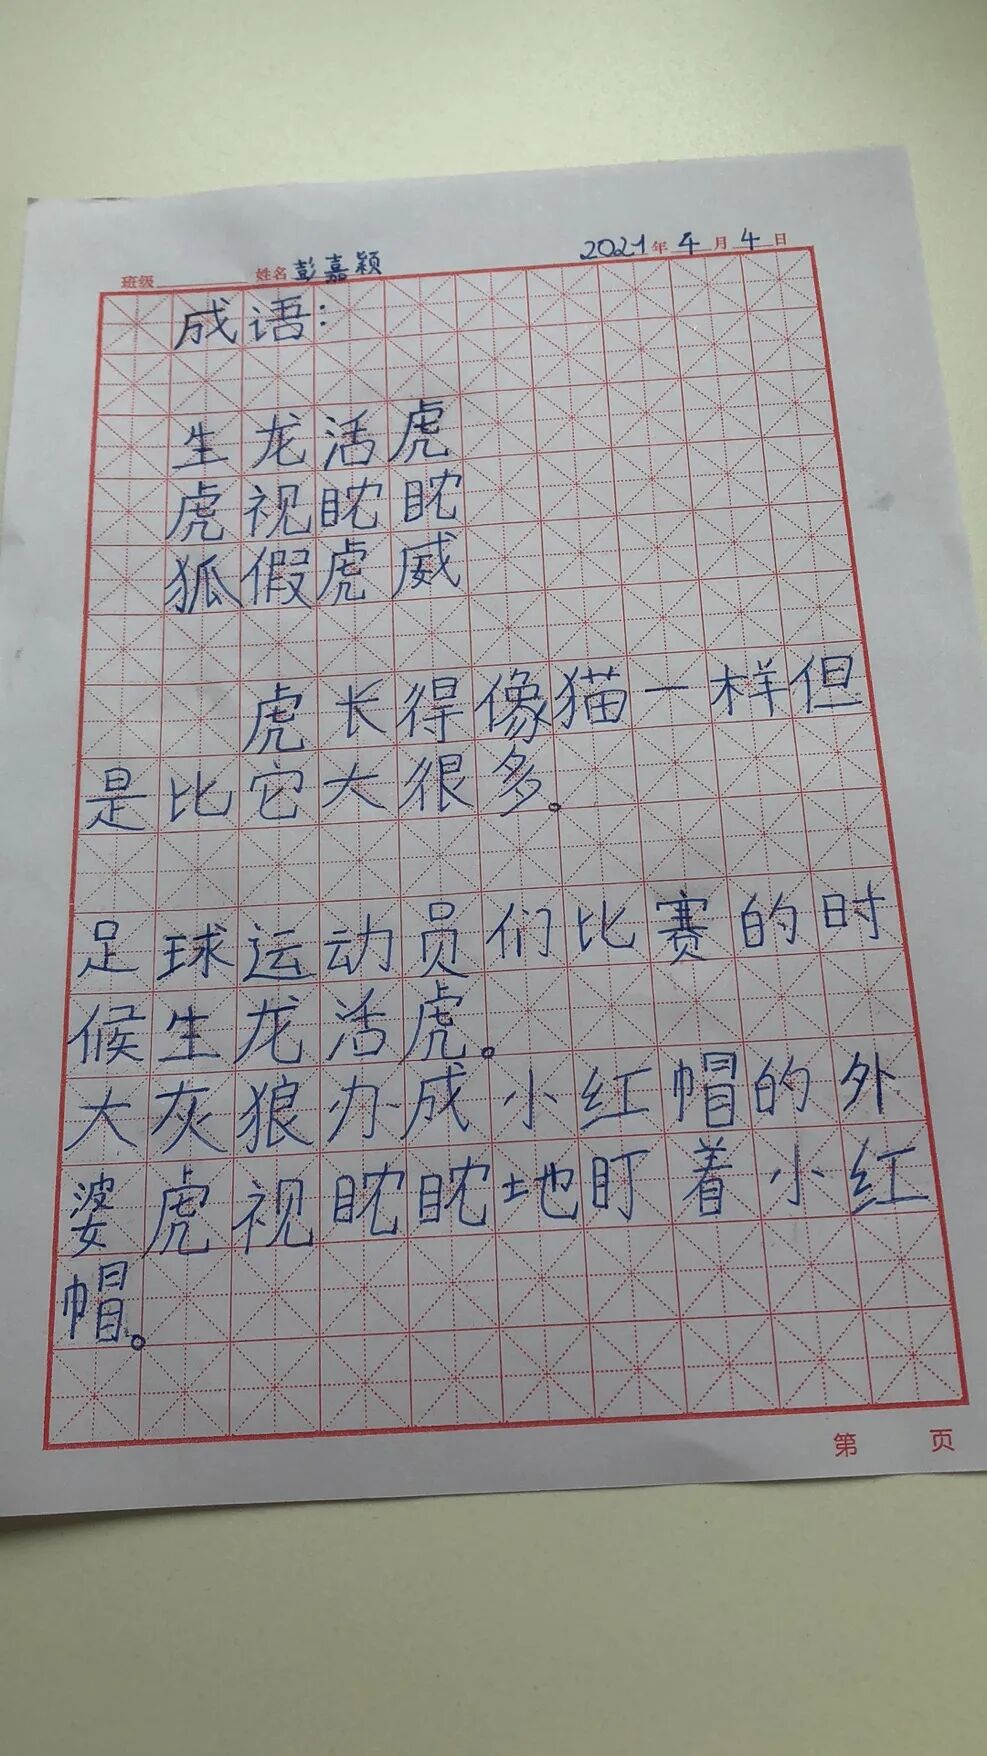 班级 姓名 彭嘉颖 2021年4月4日
成语:
生龙活虎
虎视眈眈
狐假虎威
虎长得像猫一样但
是比它大很多。
足球运动员们比赛的时
候生龙活虎。
大灰狼办成小红帽的外
婆虎视眈眈地盯着小红
帽。
第 页